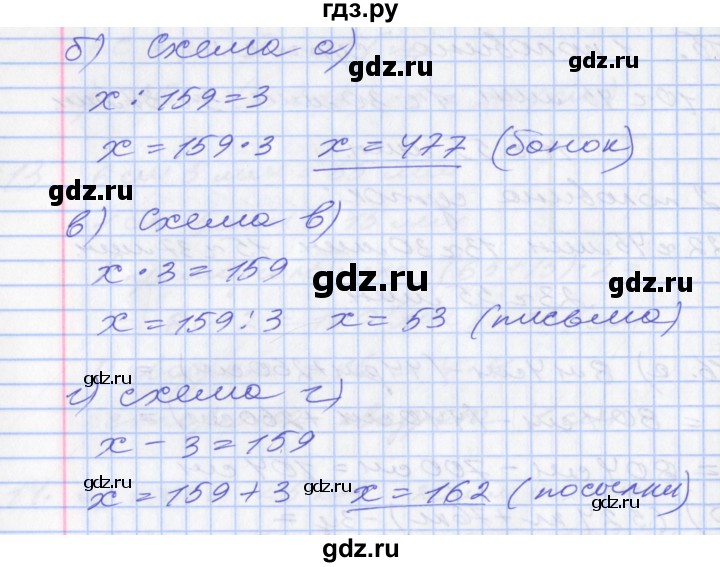 гдз.ру
б) Схема а)
gdz.ru
gdz.ru
x : 159 = 3
x = 159 · 3 x = 477 (банок)
gdz.ru
в) Схема в)
x · 3 = 159
gdz.ru
x = 159 : 3 x = 53 (письма)
gdz.ru
gdz.ru
г) Схема г)
x - 3 = 159
gdz.ru
gdz.ru
x = 159 + 3 x = 162 (посылки)
gdz.ru
gdz.ru